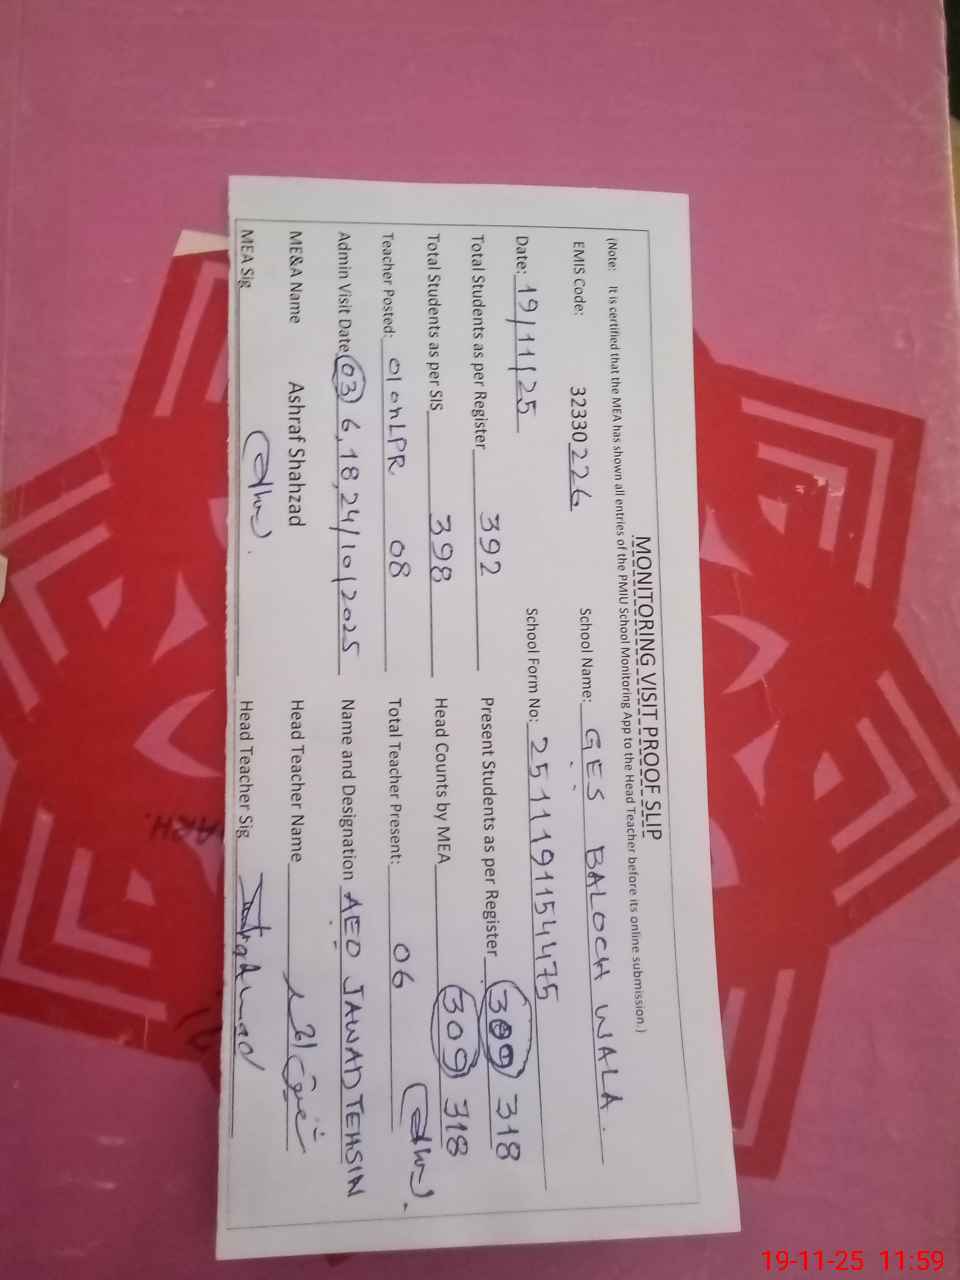 MONITORING VISIT PROOF SLIP
(Note: It is certified that the MEA has shown all entries of the PMIU School Monitoring App to the Head Teacher before its online submission.)
EMIS Code: 32330226 School Name: GES BALOCH WALA.
Date: 19/11/25 School Form No: 2511191154475
Total Students as per Register 392 Present Students as per Register 309 318
Total Students as per SIS 398 Head Counts by MEA 309 318
Teacher Posted: 01 on LPR 08 Total Teacher Present: 06
Admin Visit Date 03 6,18,24/10/2025 Name and Designation AEO JAWAD TEHSIN
ME&A Name Ashraf Shahzad Head Teacher Name
MEA Sig Head Teacher Sig
19-11-25 11:59